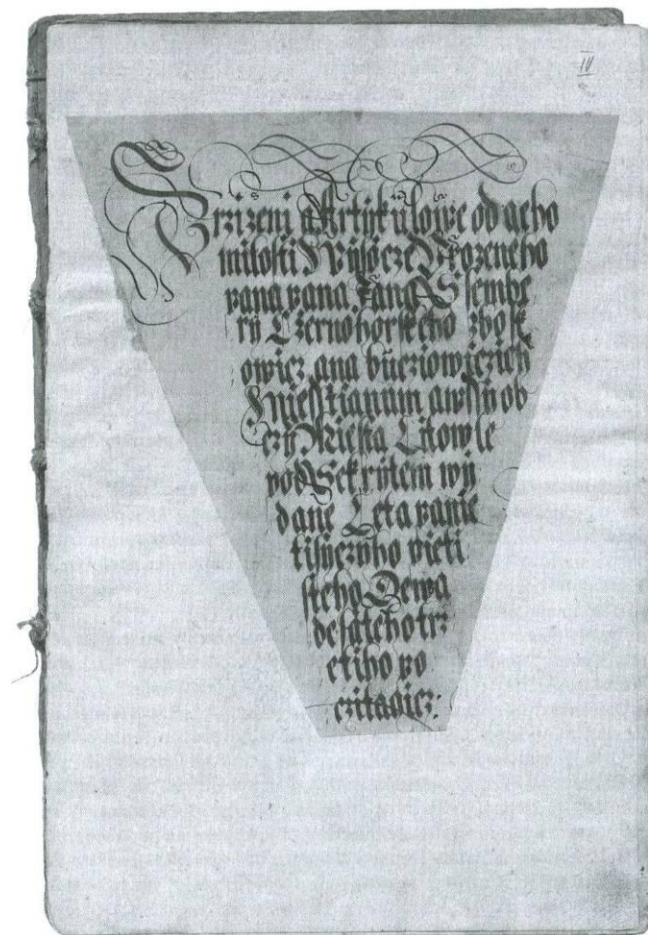 IV
Zrzizeni a Artykulowe od geho
milosti Wysocze Vrozeneho
pana pana Jana Ssembe
ry Czernohorskeho zbosk
owicz ana bucziowiczich
Miesstianum awssy ob
czy Miesta Litowle
pod Sekrytem wy
dane Leta panie
tisyczyho pieti
steho Dewa
desateho trz
etiho po
czitagicz: